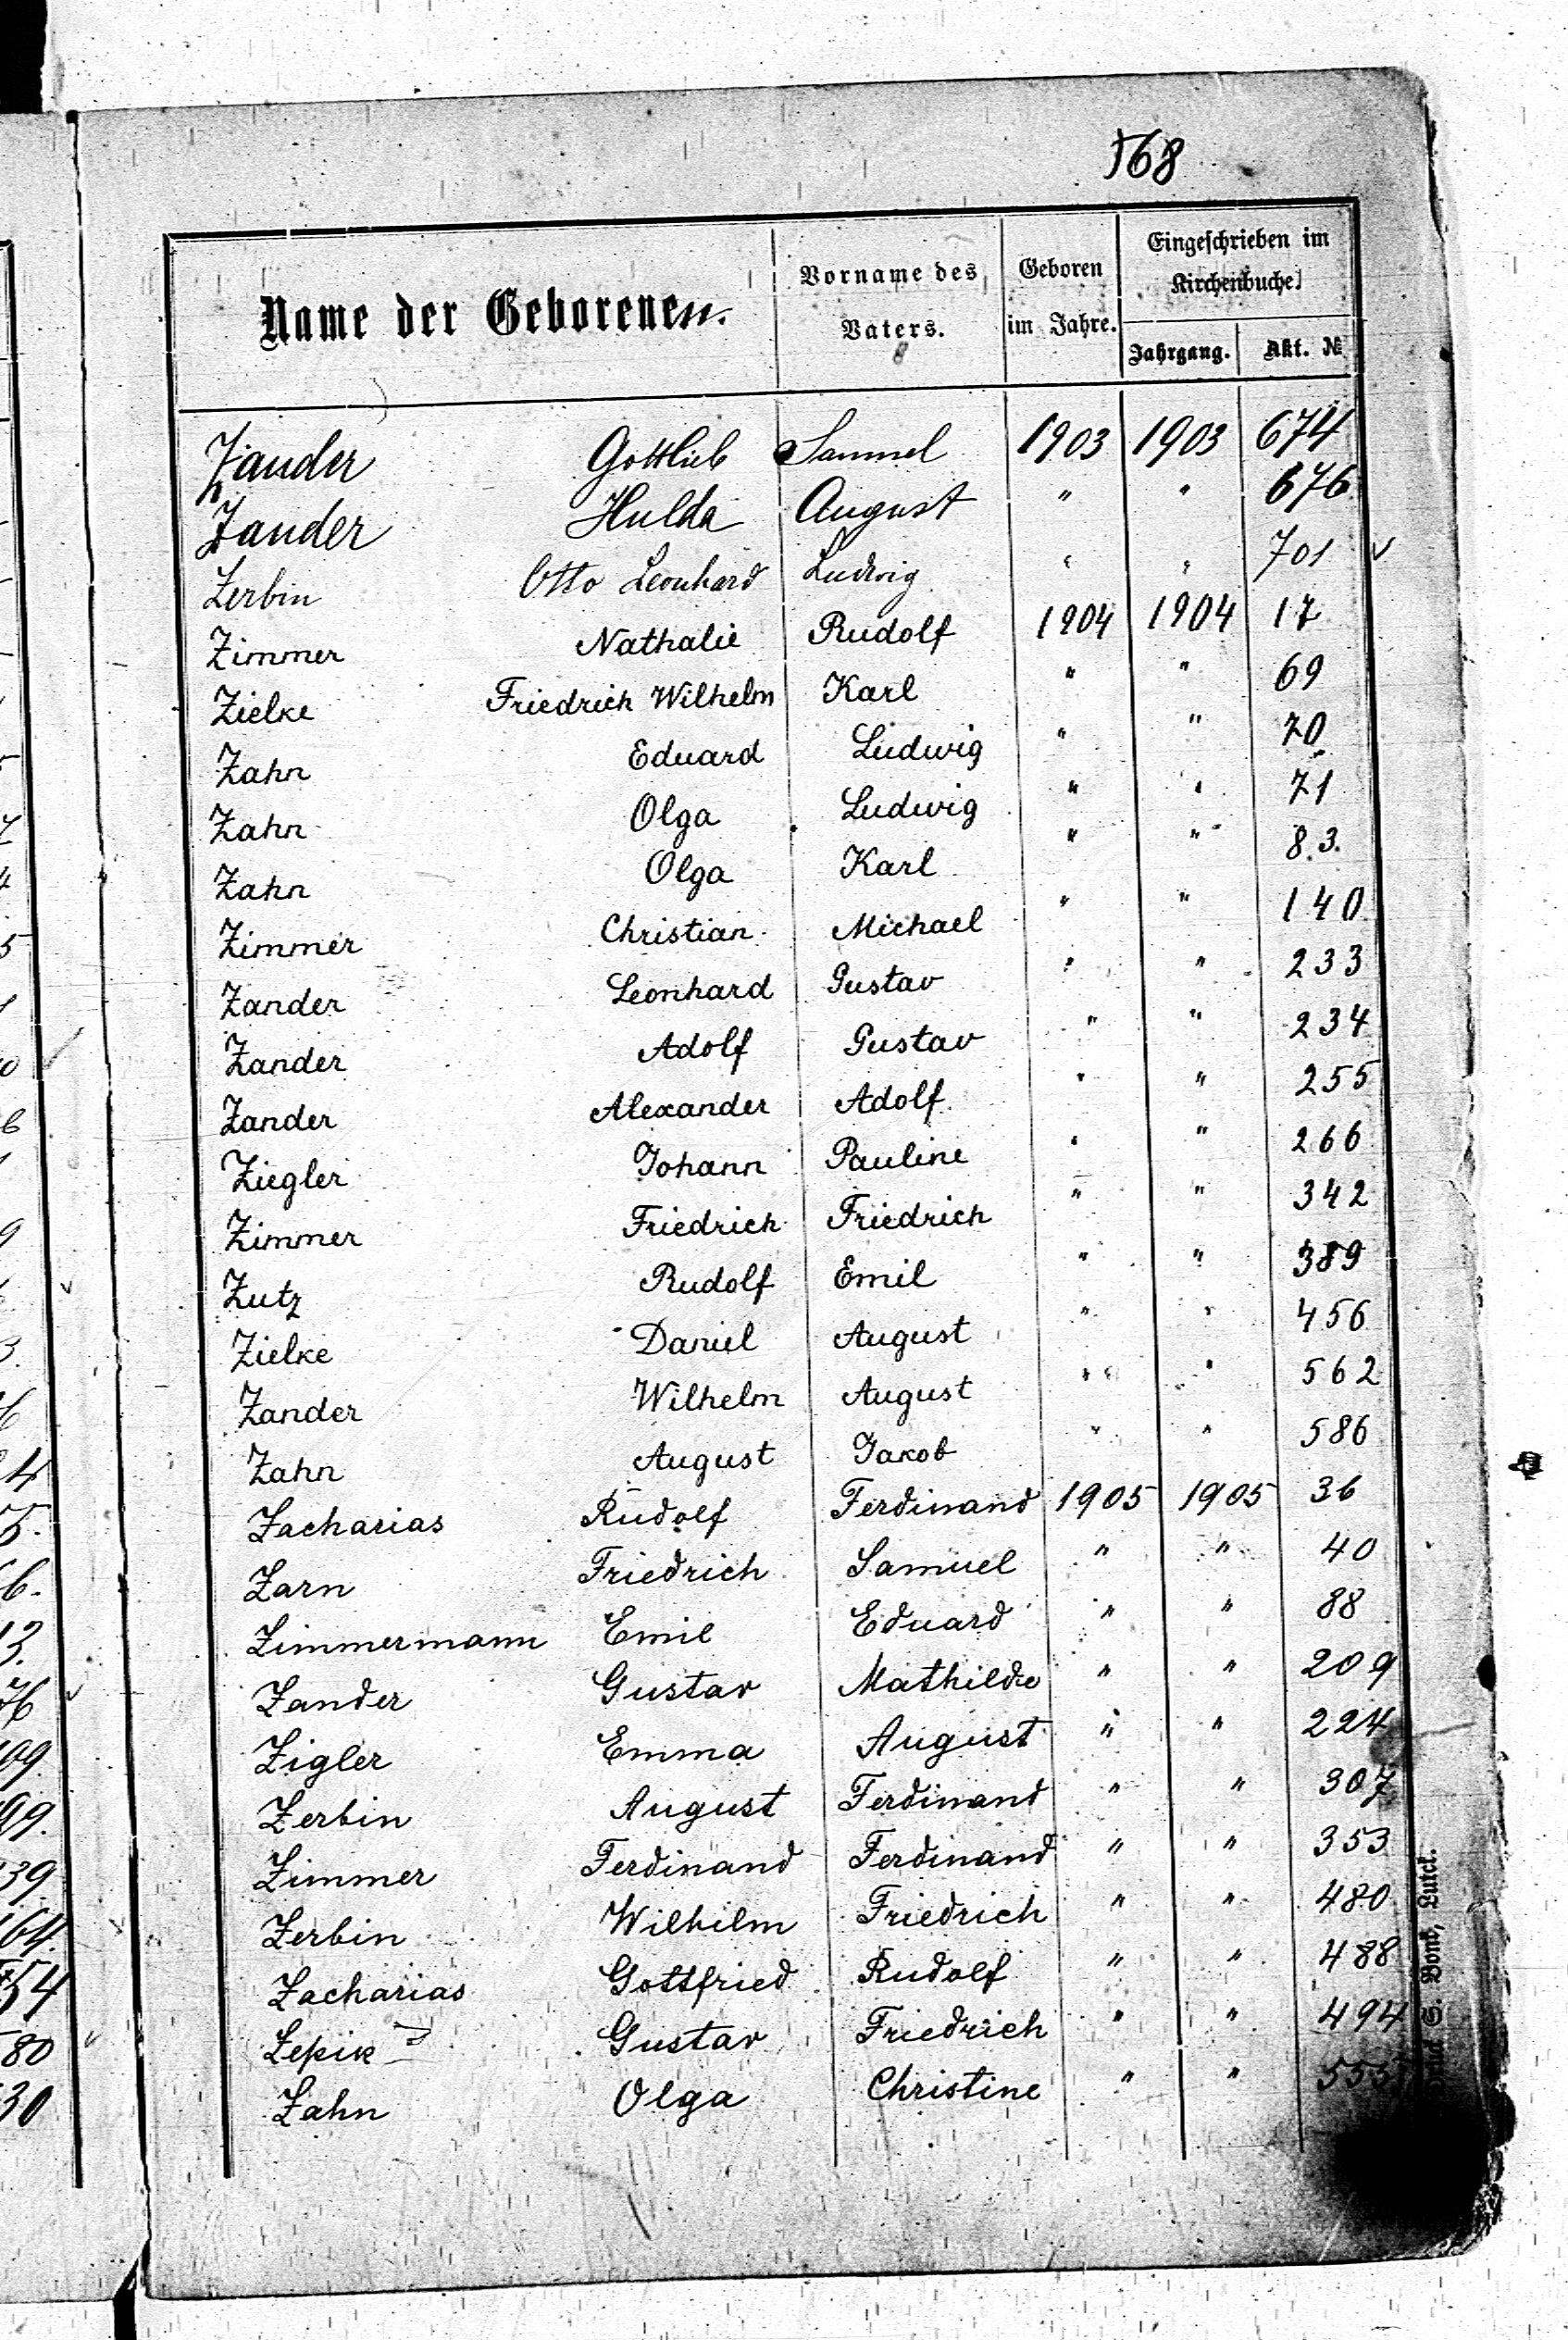 168
Name der Geborenen. Vorname des Vaters. Geboren im Jahre. Eingeschrieben im Kirchenbuche. Jahrgang. Akt. №
Zander Gottlieb Samuel 1903 1903 674
Zander Hulda August " " 676
Zerbin Otto Leonhard Ludwig " " 701 v
Zimmer Nathalie Rudolf 1904 1904 17
Zielke Friedrich Wilhelm Karl " " 69
Zahn Eduard Ludwig " " 70
Zahn Olga Ludwig " " 71
Zahn Olga Karl " " 83.
Zimmer Christian Michael " " 140
Zander Leonhard Gustav " " 233
Zander Adolf Gustav " " 234
Zander Alexander Adolf " " 255
Ziegler Johann Pauline " " 266
Zimmer Friedrich Friedrich " " 342
Zutz Rudolf Emil " " 389
Zielke Daniel August " " 456
Zander Wilhelm August " " 562
Zahn August Jakob " " 586
Zacharias Rudolf Ferdinand 1905 1905 36
Zarn Friedrich Samuel " " 40
Zimmermann Emil Eduard " " 88
Zander Gustav Mathilde " " 209
Zigler Emma August " " 224
Zerbin August Ferdinand " " 307
Zimmer Ferdinand Ferdinand " " 353
Zerbin Wilhelm Friedrich " " 480
Zacharias Gottfried Rudolf " " 488
Zepik Gustav Friedrich " " 494
Zahn Olga Christine " " 555